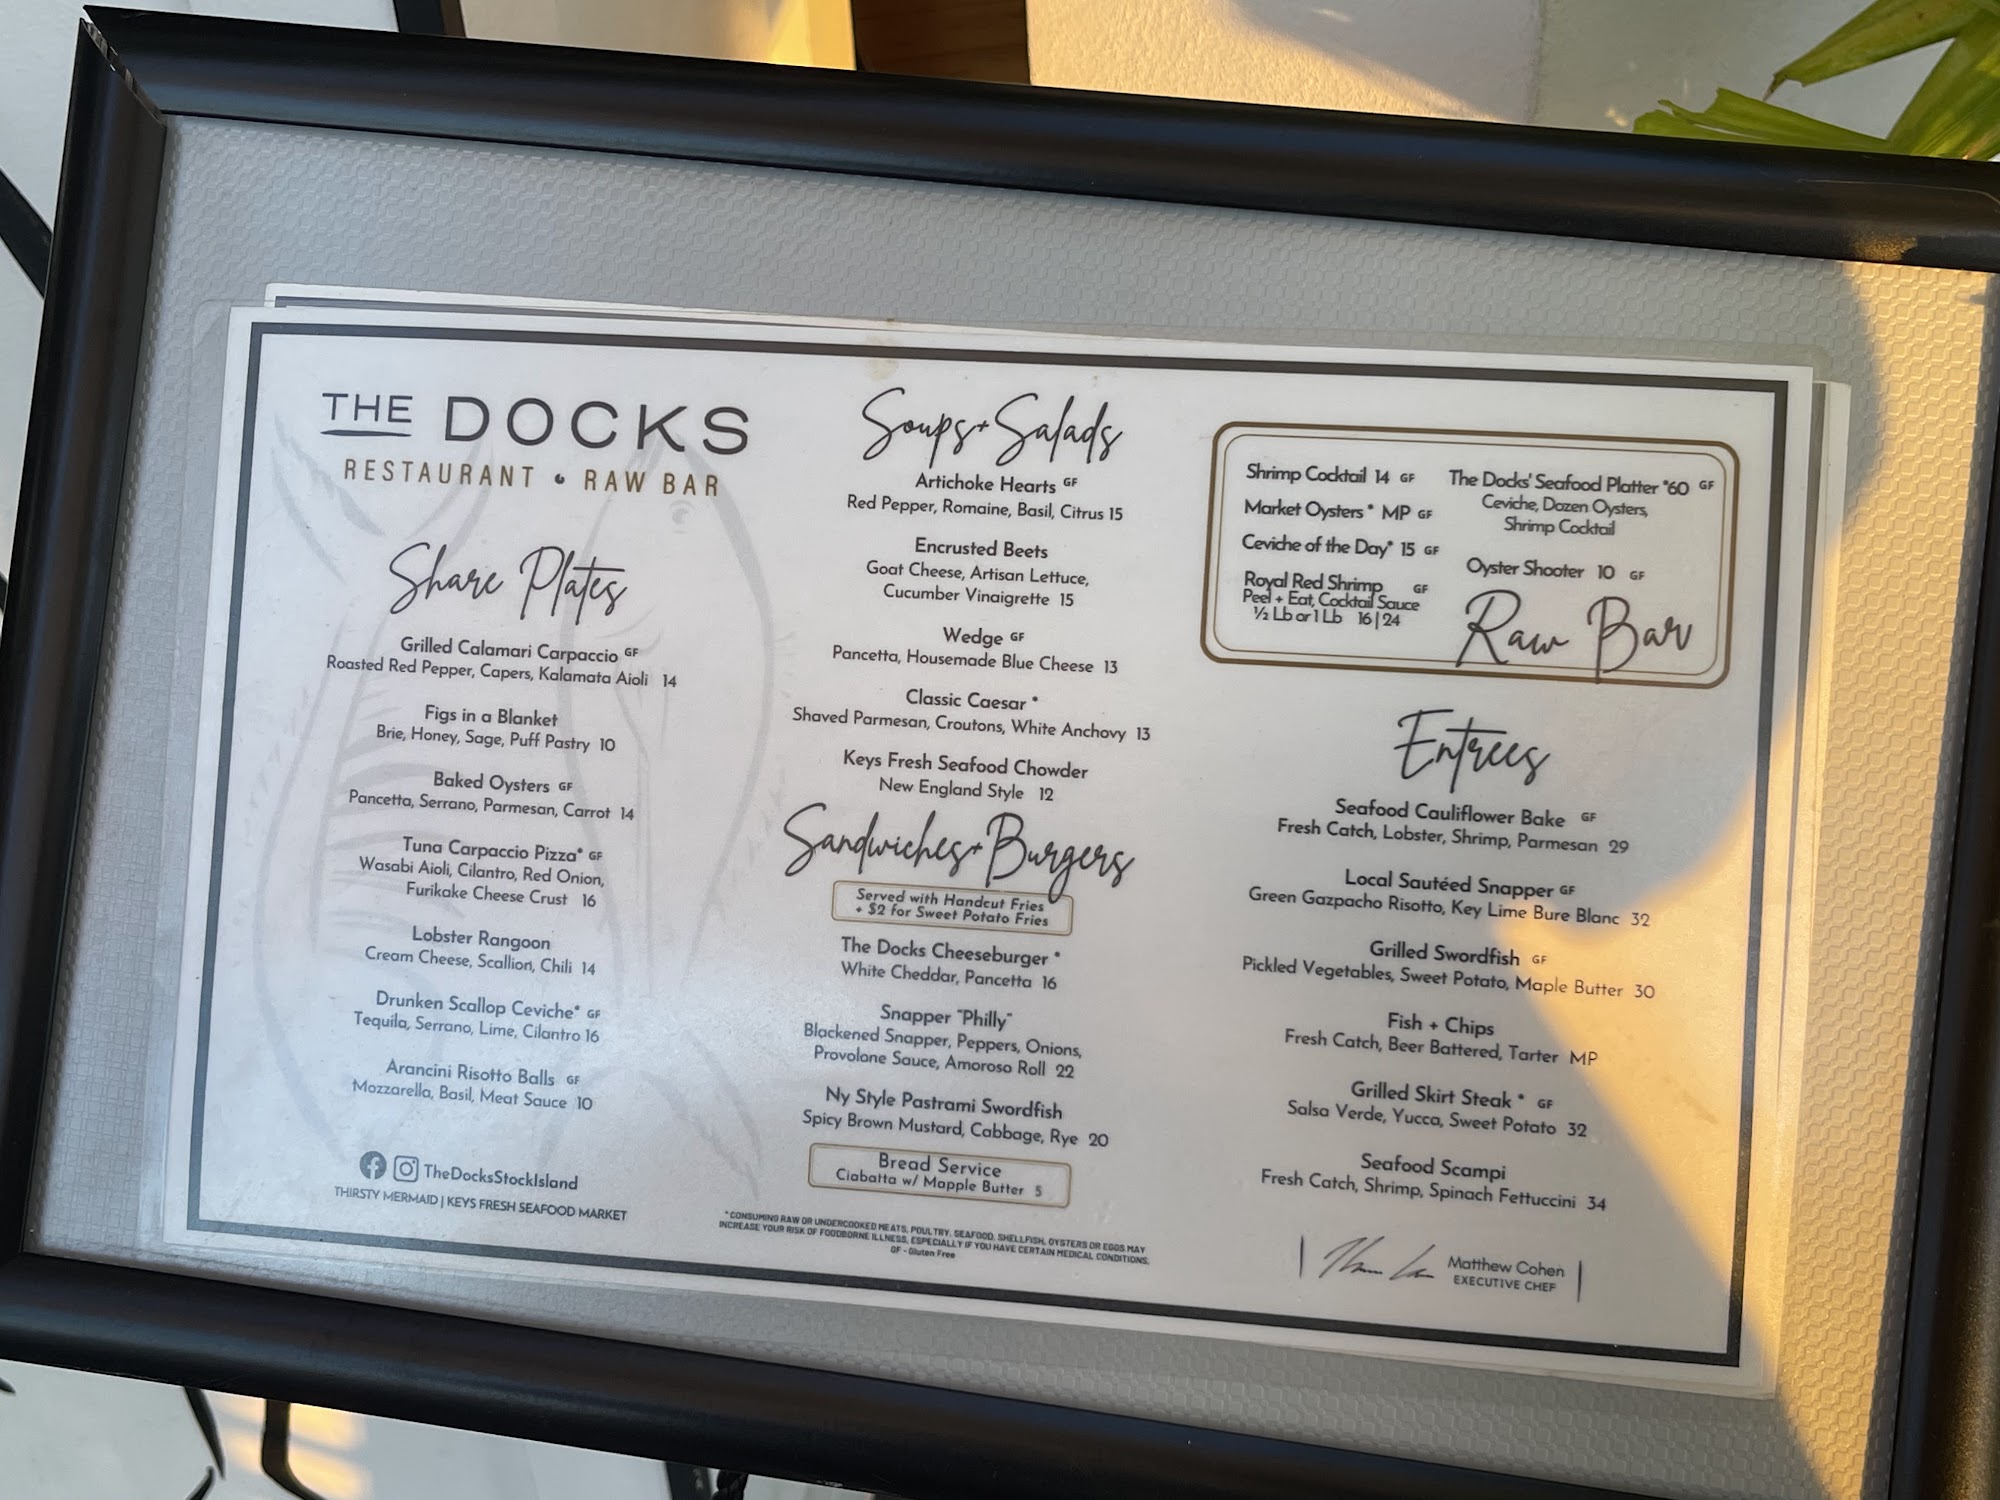 THE DOCKS
RESTAURANT • RAW BAR
Share Plates
Grilled Calamari Carpaccio GF
Roasted Red Pepper, Capers, Kalamata Aioli 14
Figs in a Blanket
Brie, Honey, Sage, Puff Pastry 10
Baked Oysters GF
Pancetta, Serrano, Parmesan, Carrot 14
Tuna Carpaccio Pizza* GF
Wasabi Aioli, Cilantro, Red Onion,
Furikake Cheese Crust 16
Lobster Rangoon
Cream Cheese, Scallion, Chili 14
Drunken Scallop Ceviche* GF
Tequila, Serrano, Lime, Cilantro 16
Arancini Risotto Balls GF
Mozzarella, Basil, Meat Sauce 10
TheDocksStockIsland
THIRSTY MERMAID | KEYS FRESH SEAFOOD MARKET
Soups + Salads
Artichoke Hearts GF
Red Pepper, Romaine, Basil, Citrus 15
Encrusted Beets
Goat Cheese, Artisan Lettuce,
Cucumber Vinaigrette 15
Wedge GF
Pancetta, Housemade Blue Cheese 13
Classic Caesar *
Shaved Parmesan, Croutons, White Anchovy 13
Keys Fresh Seafood Chowder
New England Style 12
Sandwiches + Burgers
Served with Handcut Fries
+ $2 for Sweet Potato Fries
The Docks Cheeseburger *
White Cheddar, Pancetta 16
Snapper "Philly"
Blackened Snapper, Peppers, Onions,
Provolone Sauce, Amoroso Roll 22
Ny Style Pastrami Swordfish
Spicy Brown Mustard, Cabbage, Rye 20
Bread Service
Ciabatta w/ Mapple Butter 5
* CONSUMING RAW OR UNDERCOOKED MEATS, POULTRY, SEAFOOD, SHELLFISH, OYSTERS OR EGGS MAY
INCREASE YOUR RISK OF FOODBORNE ILLNESS, ESPECIALLY IF YOU HAVE CERTAIN MEDICAL CONDITIONS.
GF - Gluten Free
Shrimp Cocktail 14 GF
Market Oysters * MP GF
Ceviche of the Day* 15 GF
Royal Red Shrimp GF
Peel + Eat, Cocktail Sauce
½ Lb or 1 Lb 16 | 24
The Docks' Seafood Platter *60 GF
Ceviche, Dozen Oysters,
Shrimp Cocktail
Oyster Shooter 10 GF
Raw Bar
Entrees
Seafood Cauliflower Bake GF
Fresh Catch, Lobster, Shrimp, Parmesan 29
Local Sautéed Snapper GF
Green Gazpacho Risotto, Key Lime Bure Blanc 32
Grilled Swordfish GF
Pickled Vegetables, Sweet Potato, Maple Butter 30
Fish + Chips
Fresh Catch, Beer Battered, Tarter MP
Grilled Skirt Steak * GF
Salsa Verde, Yucca, Sweet Potato 32
Seafood Scampi
Fresh Catch, Shrimp, Spinach Fettuccini 34
Matthew Cohen
EXECUTIVE CHEF